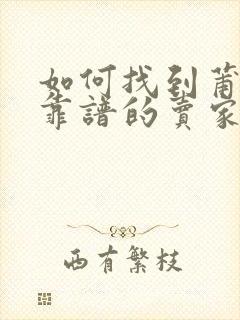 如何找到莆
靠谱的卖家
西有繁枝